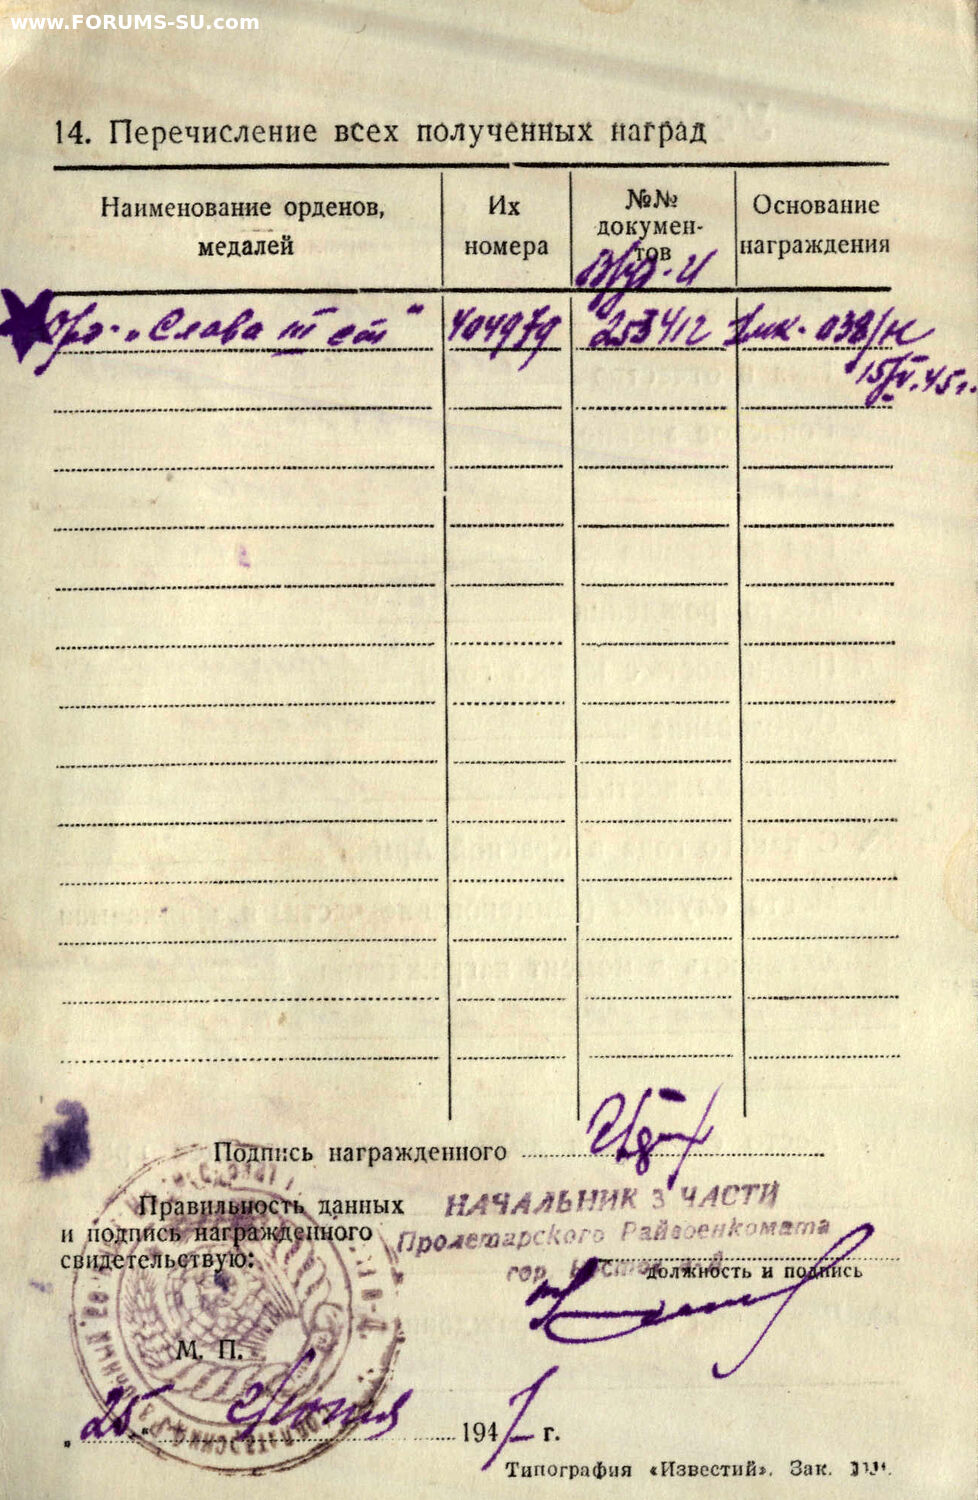 www.FORUMS-SU.com
14. Перечисление всех полученных наград
Наименование орденов, медалей
Их номера
№№ документов
Основание награждения
Орд. „Слава III ст"
404979
253412
038/н
15/V.45г.
Подпись награжденного
Правильность данных
и подпись награжденного
свидетельствую:
НАЧАЛЬНИК 3 ЧАСТИ
Пролетарского Райвоенкомата
гор.
должность и подпись
М. П.
„25" Июня 1947 г.
Типография «Известий». Зак.